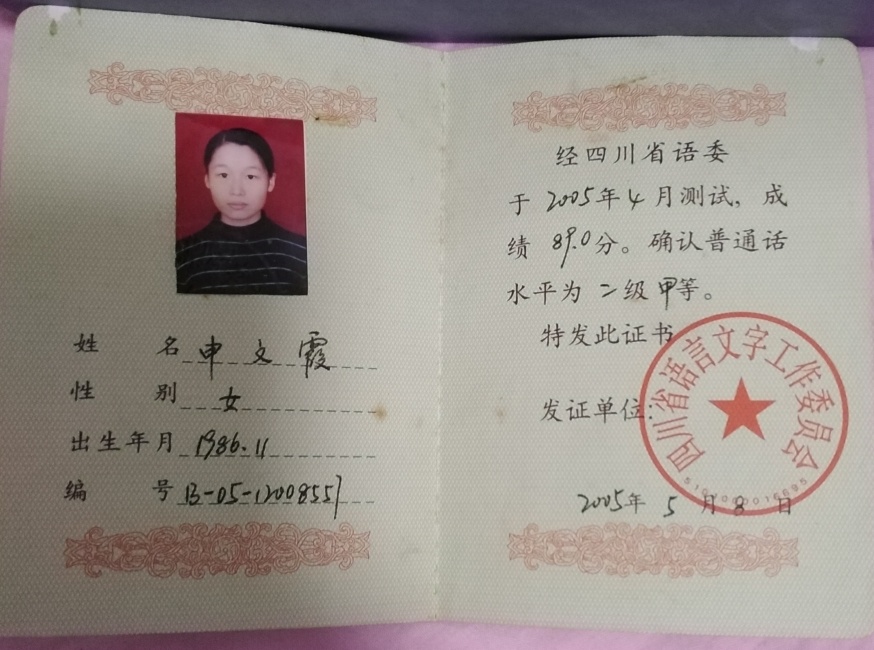 姓 名 申文霞
性 别 女
出生年月 1986.11
编 号 B-05-12008557
经四川省语委
于 2005年4月测试，成
绩 89.0分。确认普通话
水平为 二级甲等。
特发此证书
发证单位：
四川省语言文字工作委员会
2005年 5 月 8 日